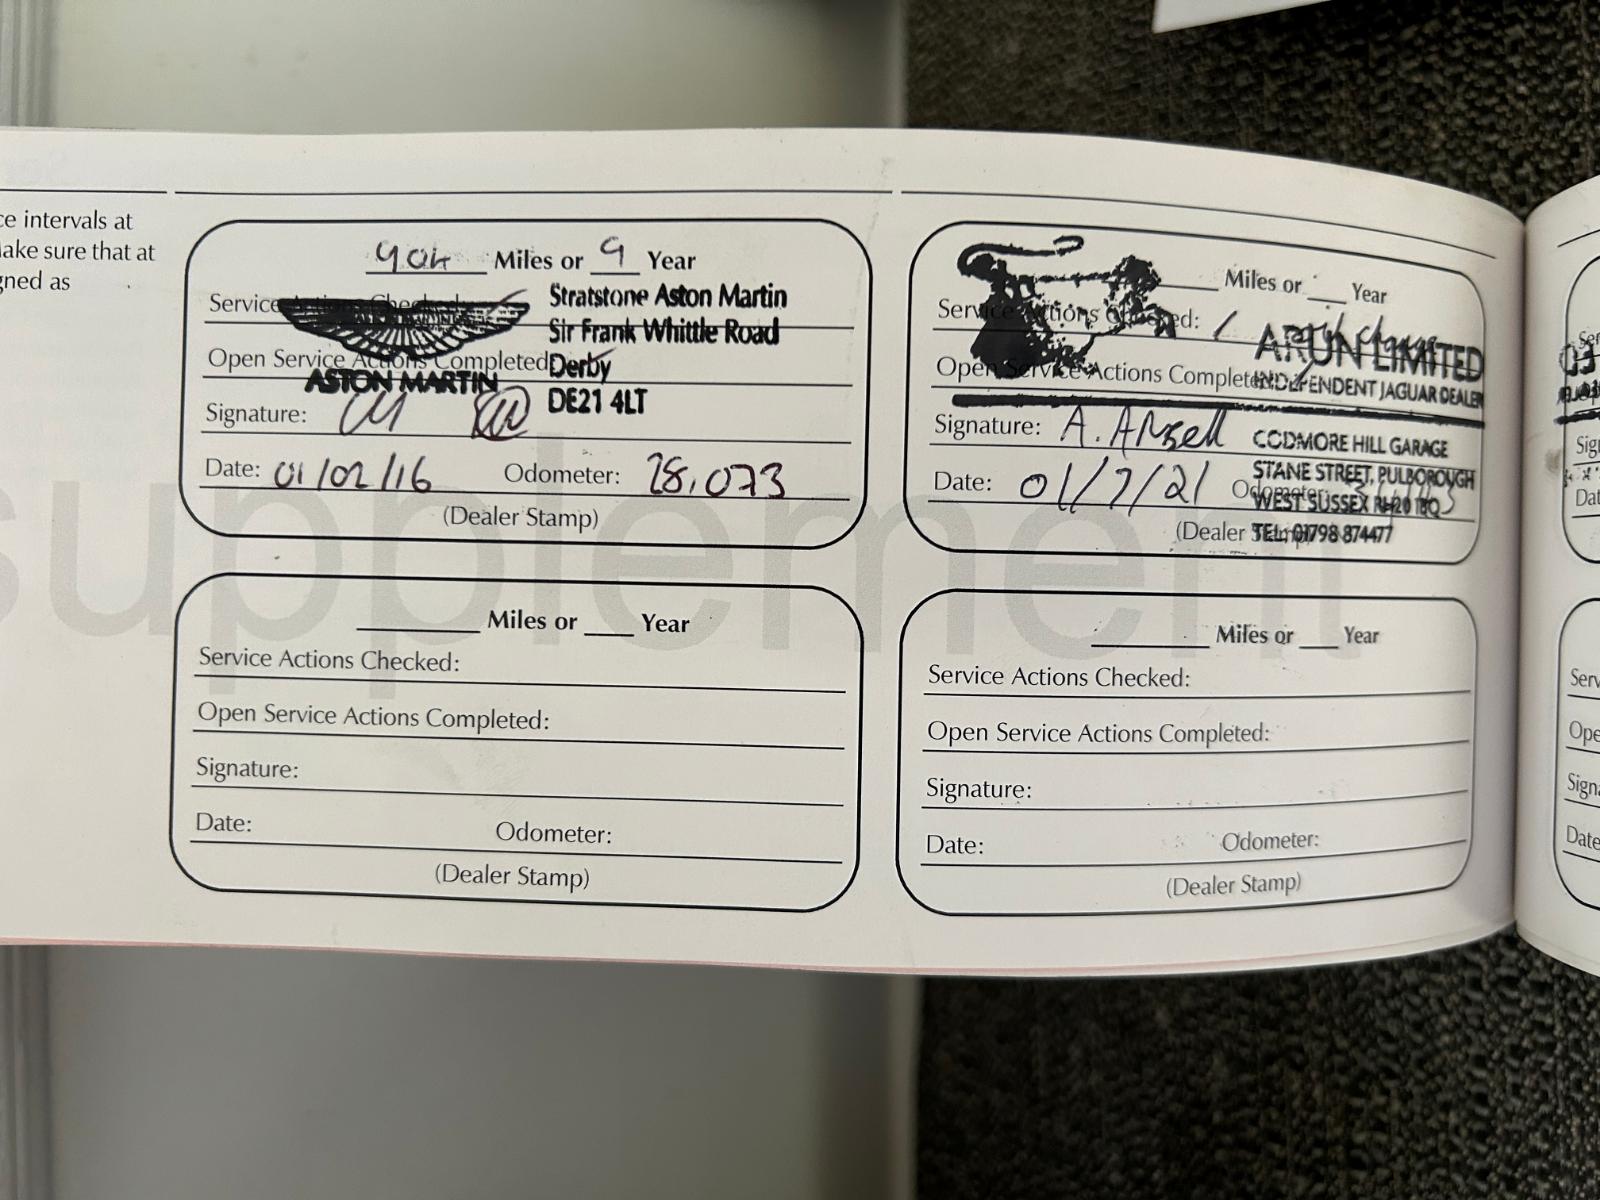 ce intervals at
ake sure that at
gned as
90k Miles or 9 Year
Service Actions Checked:
Stratstone Aston Martin
Sir Frank Whittle Road
Open Service Actions Completed
Derby
ASTON MARTIN
DE21 4LT
Signature:
Date: 01/02/16 Odometer: 28,073
(Dealer Stamp)
Miles or Year
Service Actions Checked:
Open Service Actions Completed:
Signature:
Date: Odometer:
(Dealer Stamp)
Miles or Year
Service Actions Checked:
ARUN LIMITED
Open Service Actions Completed
INDEPENDENT JAGUAR DEALER
Signature: A. Ansell
CODMORE HILL GARAGE
STANE STREET, PULBOROUGH
Date: 01/7/21 Odometer:
WEST SUSSEX RH20 1BQ
(Dealer Stamp)
TEL: 01798 874477
Miles or Year
Service Actions Checked:
Open Service Actions Completed:
Signature:
Date: Odometer:
(Dealer Stamp)
supplement
Ser
Sig
Dat
Serv
Ope
Signa
Date